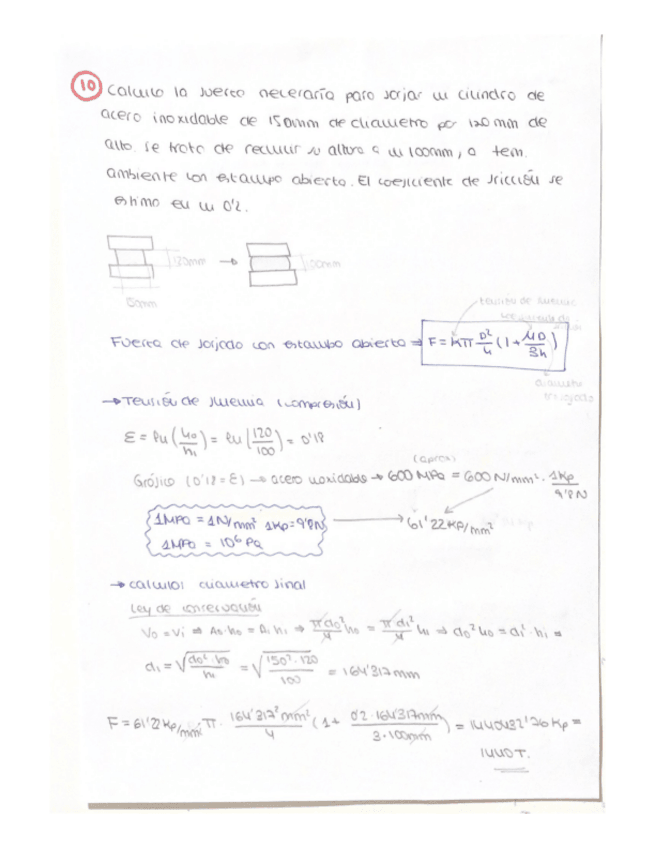 10 Calculo la fuerza necesaria para forjar un cilindro de
acero inoxidable de 150mm de diametro por 120mm de
alto. Se trata de reducir su altura a un 100mm, a tem.
ambiente con estampo abierto. El coeficiente de fricción se
estimo en un 0'2.
120mm → 100mm
150mm
tensión de fluencia
coeficiente de fricción
Fuerza de forjado con estampo abierto ⇒ F = Kπ D²/4 (1 + μD/3h)
diametro
→ Tensión de fluencia (compresión)
ε = ln(h₀/h₁) = ln(120/100) = 0'18
(aprox)
Gráfico (0'18 = ε) → acero inoxidable → 600 MPa = 600 N/mm² · 1Kp/9'8N
1MPa = 1N/mm² 1Kp = 9'8N → 61'22 KP/mm²
1MPa = 10⁶ Pa
→ calculo: diametro final
Ley de conservación
V₀ = V₁ ⇒ A₀·h₀ = A₁·h₁ ⇒ πd₀²/4 h₀ = πd₁²/4 h₁ ⇒ d₀²h₀ = d₁²·h₁ =
d₁ = √(d₀²·h₀/h₁) = √(150²·120/100) = 164'317mm
F = 61'22 Kp/mm² π · 164'317² mm²/4 (1 + 0'2·164'317mm/3·100mm) = 1440432'76 Kp =
1440T.